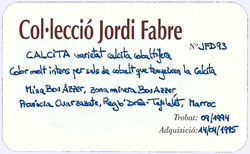 Col·lecció Jordi Fabre
Nº JFD93
CALCITA varietat calcita cobaltífera
Color molt intens per sals de cobalt que tenyeixen la calcita
Mina Bou Azzer, zona minera Bou Azzer
Província Ouarzazate, Regió Drâa-Tafilalet, Marroc
Trobat: 09/1994
Adquisició: 14/04/1995